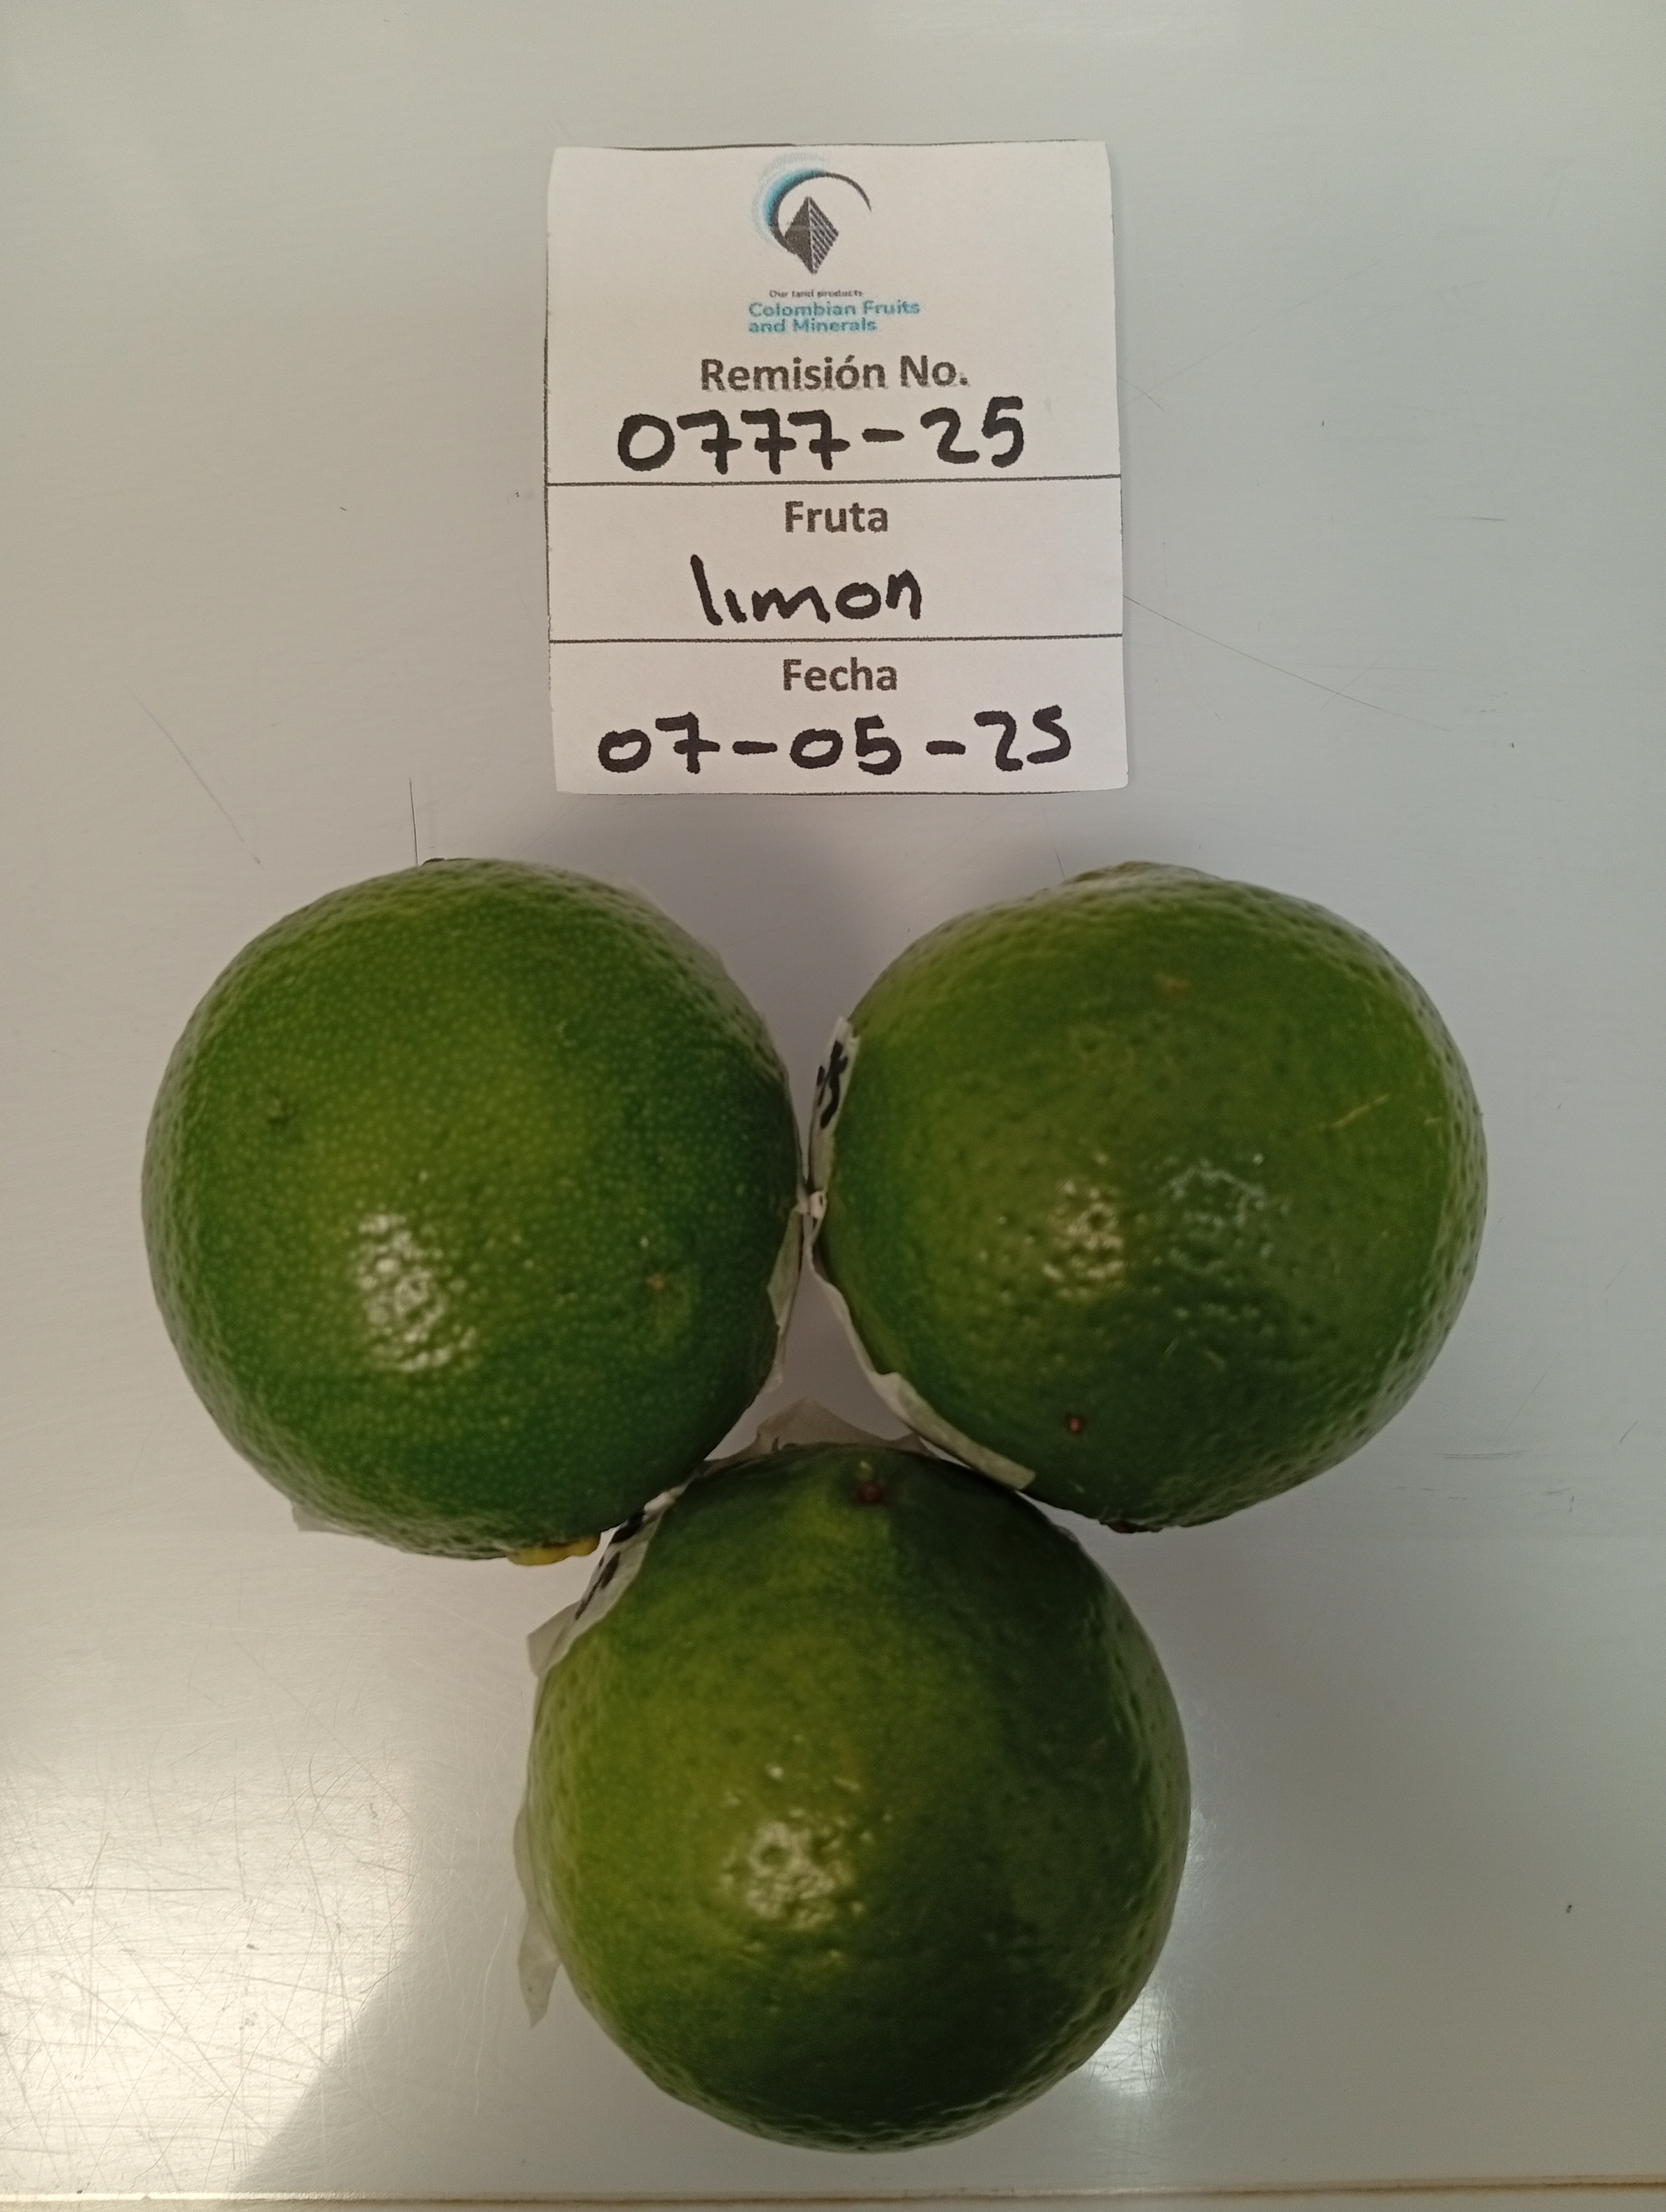 Our land products
Colombian Fruits
and Minerals
Remisión No.
0777-25
Fruta
limon
Fecha
07-05-25